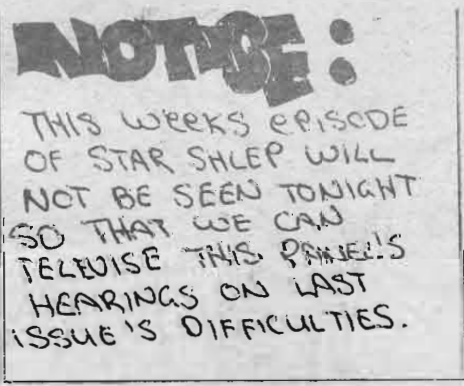 NOTICE:
THIS WEEKS EPISODE
OF STAR SHLEP WILL
NOT BE SEEN TONIGHT
SO THAT WE CAN
TELEVISE THIS PANEL'S
HEARINGS ON LAST
ISSUE'S DIFFICULTIES.